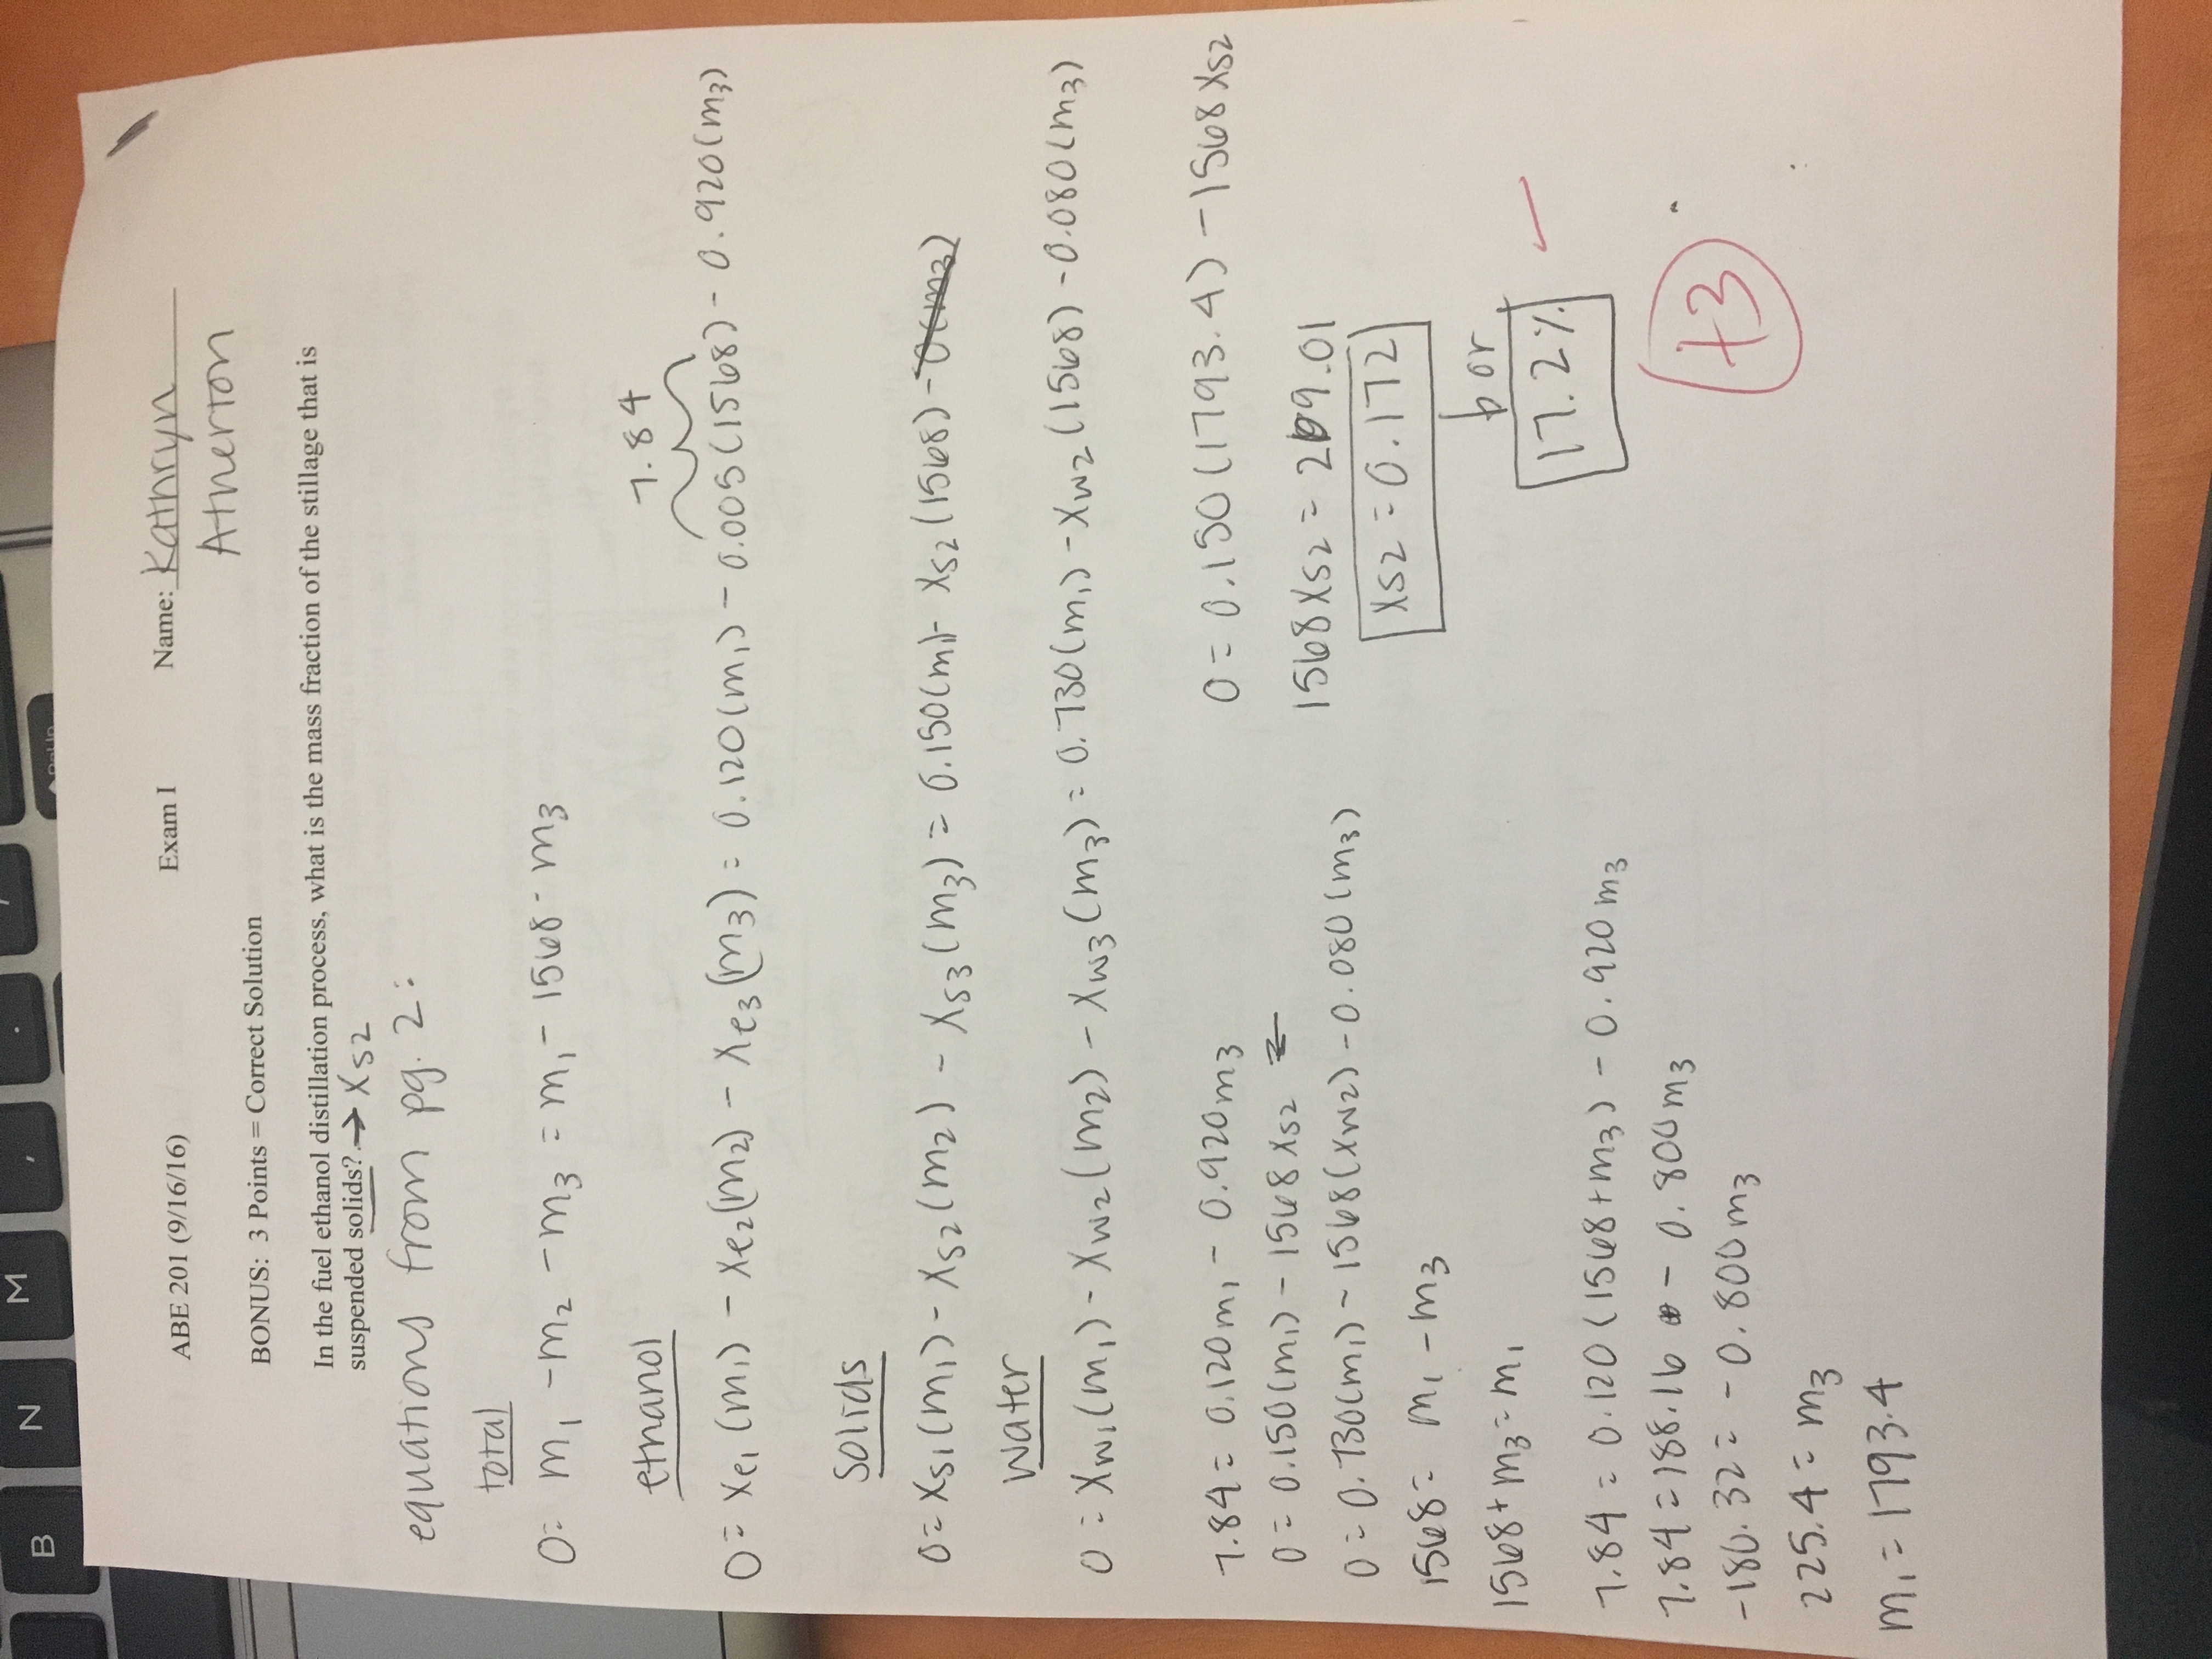 B N M , .
PgUp
ABE 201 (9/16/16) Exam I Name: Kathryn
Atherton
BONUS: 3 Points = Correct Solution
In the fuel ethanol distillation process, what is the mass fraction of the stillage that is
suspended solids? → xs2
equations from pg. 2:
total
0 = m1 - m2 - m3 = m1 - 1568 - m3
ethanol
7.84
0 = xe1(m1) - xe2(m2) - xe3(m3) = 0.120(m1) - 0.005(1568) - 0.920(m3)
solids
0 = xs1(m1) - xs2(m2) - xs3(m3) = 0.150(m1) - xs2(1568) - 0(m3)
water
0 = xw1(m1) - xw2(m2) - xw3(m3) = 0.730(m1) - xw2(1568) - 0.080(m3)
7.84 = 0.120m1 - 0.920m3
0 = 0.150(m1) - 1568xs2 ←
0 = 0.730(m1) - 1568(xw2) - 0.080(m3)
1568 = m1 - m3
1568 + m3 = m1
7.84 = 0.120(1568 + m3) - 0.920m3
7.84 = 188.16 - 0.800m3
-180.32 = -0.800m3
225.4 = m3
m1 = 1793.4
0 = 0.150(1793.4) - 1568xs2
1568xs2 = 269.01
xs2 = 0.172
or
17.2%
+3